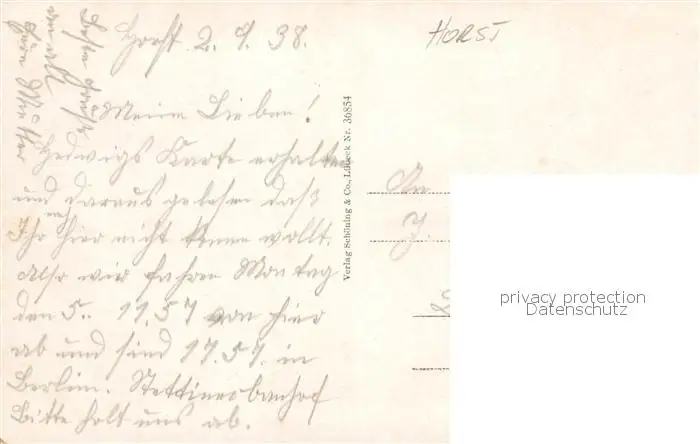 Horst. 2.9.38.
HORST
Meine Lieben!
Hedwigs Karte erhalten
und daraus gelesen daß
Ihr nach hier nicht kommen wollt.
Also wir fahren Montag
den 5. 11,57 von hier
ab und sind 17.57. in
Berlin. Stettinerbanhof
Bitte holt uns ab.
Beste Grüße
an all
Eure Mutter
Verlag Schöning & Co., Lübeck Nr. 36854
An
J.
privacy protection
Datenschutz